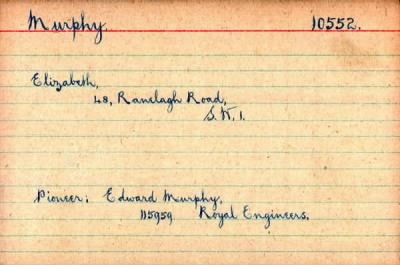 Murphy. 10552.
Elizabeth,
48, Ranelagh Road,
S.W.1.
Pioneer: Edward Murphy,
115959 Royal Engineers.